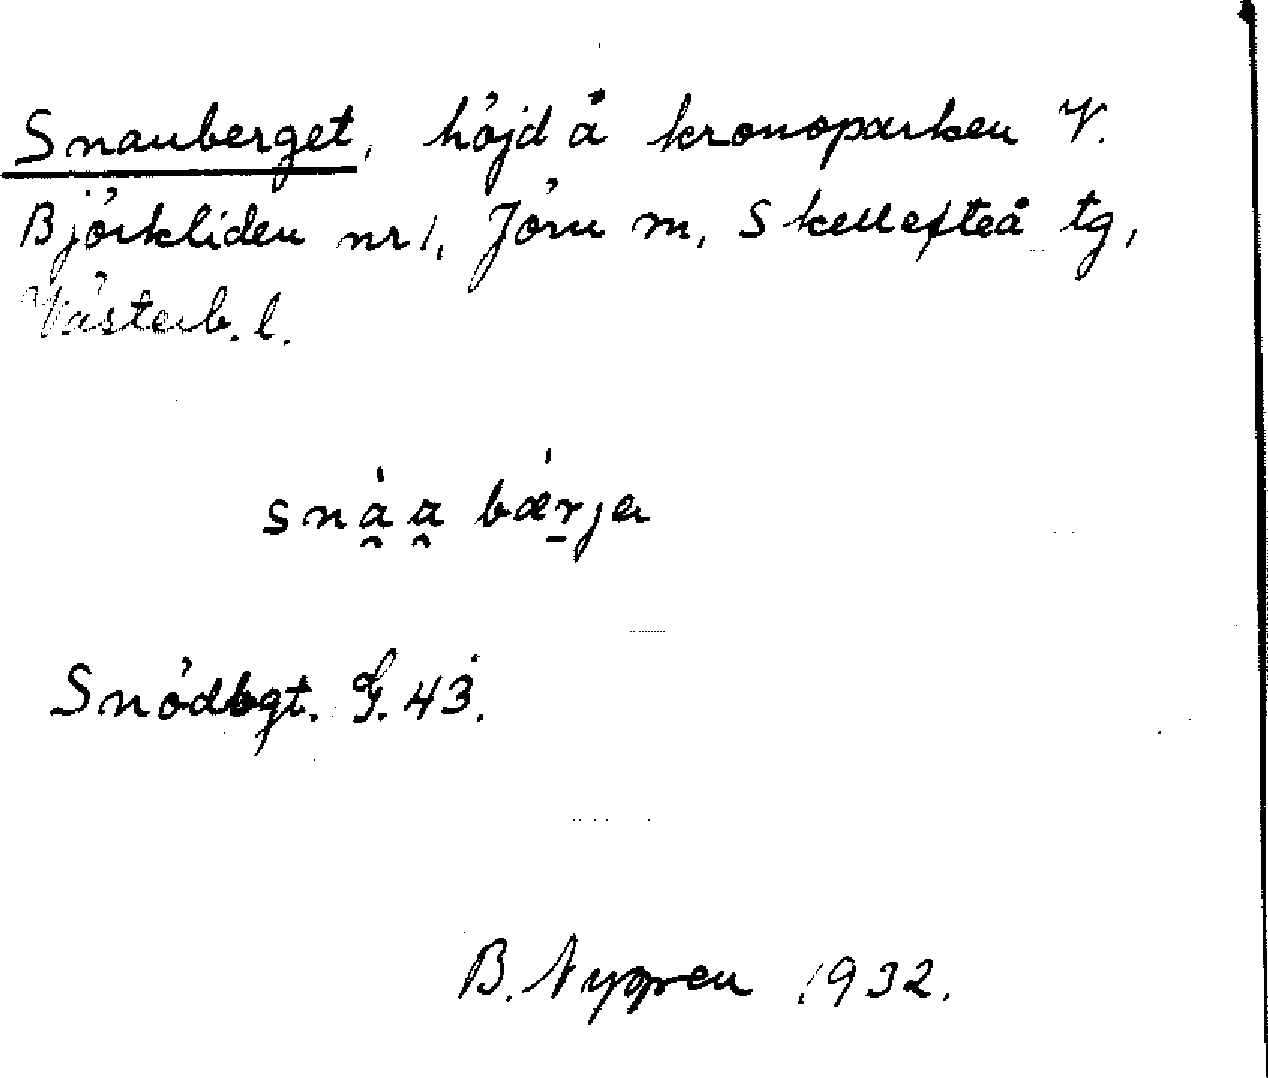 Snauberget, höjd å kronoparken V.
Björkliden nr 1, Jörn m, Skellefteå tg,
Västerb. l.
snàa bǽrja
Snödbgt. G. 43.
B. Nygren 1932.